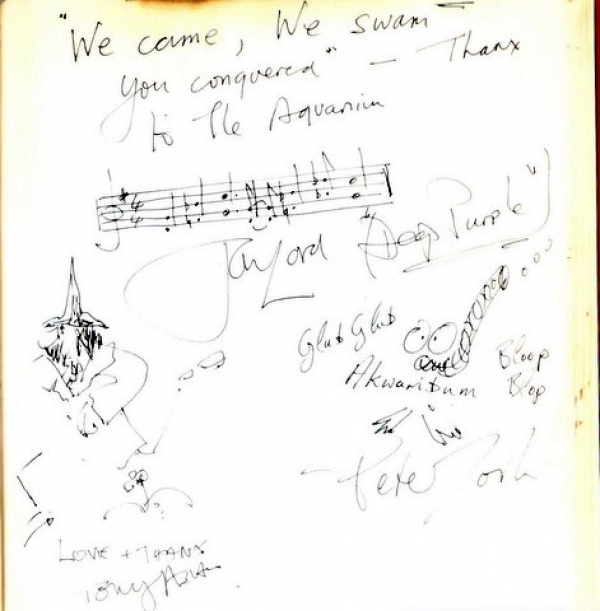 "We came, We swam
You conquered" – Thanx
to the Aquarium
Jon Lord "(Deep Purple")
Glub Glub
Akwaribum
Bloop
Blop
Pete York
LOVE + THANX
Tony Ashton